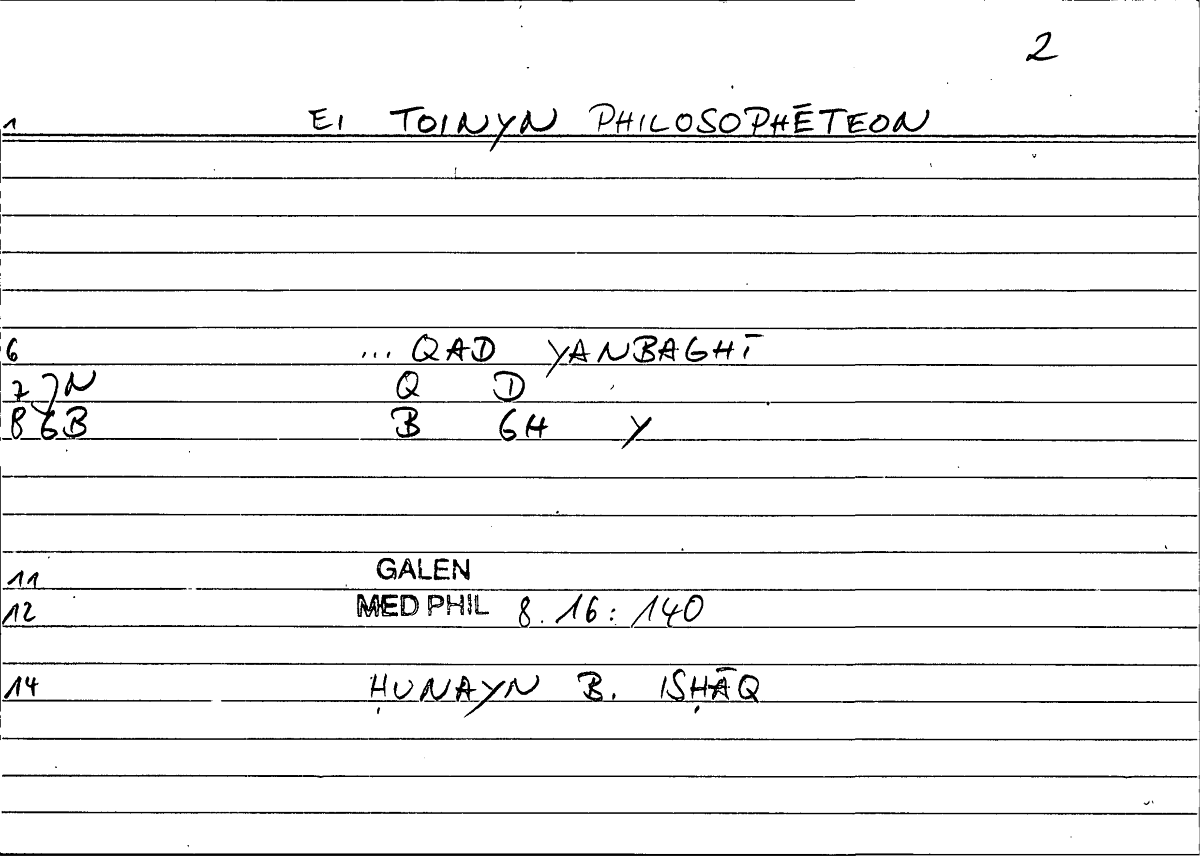 2
1 EI TOINYN PHILOSOPHĒTEON
6 ... QAD YANBAGHĪ
7 JN Q D
8 GB B GH Y
11 GALEN
12 MED PHIL 8. 16: 140
14 ḤUNAYN B. ISḤĀQ